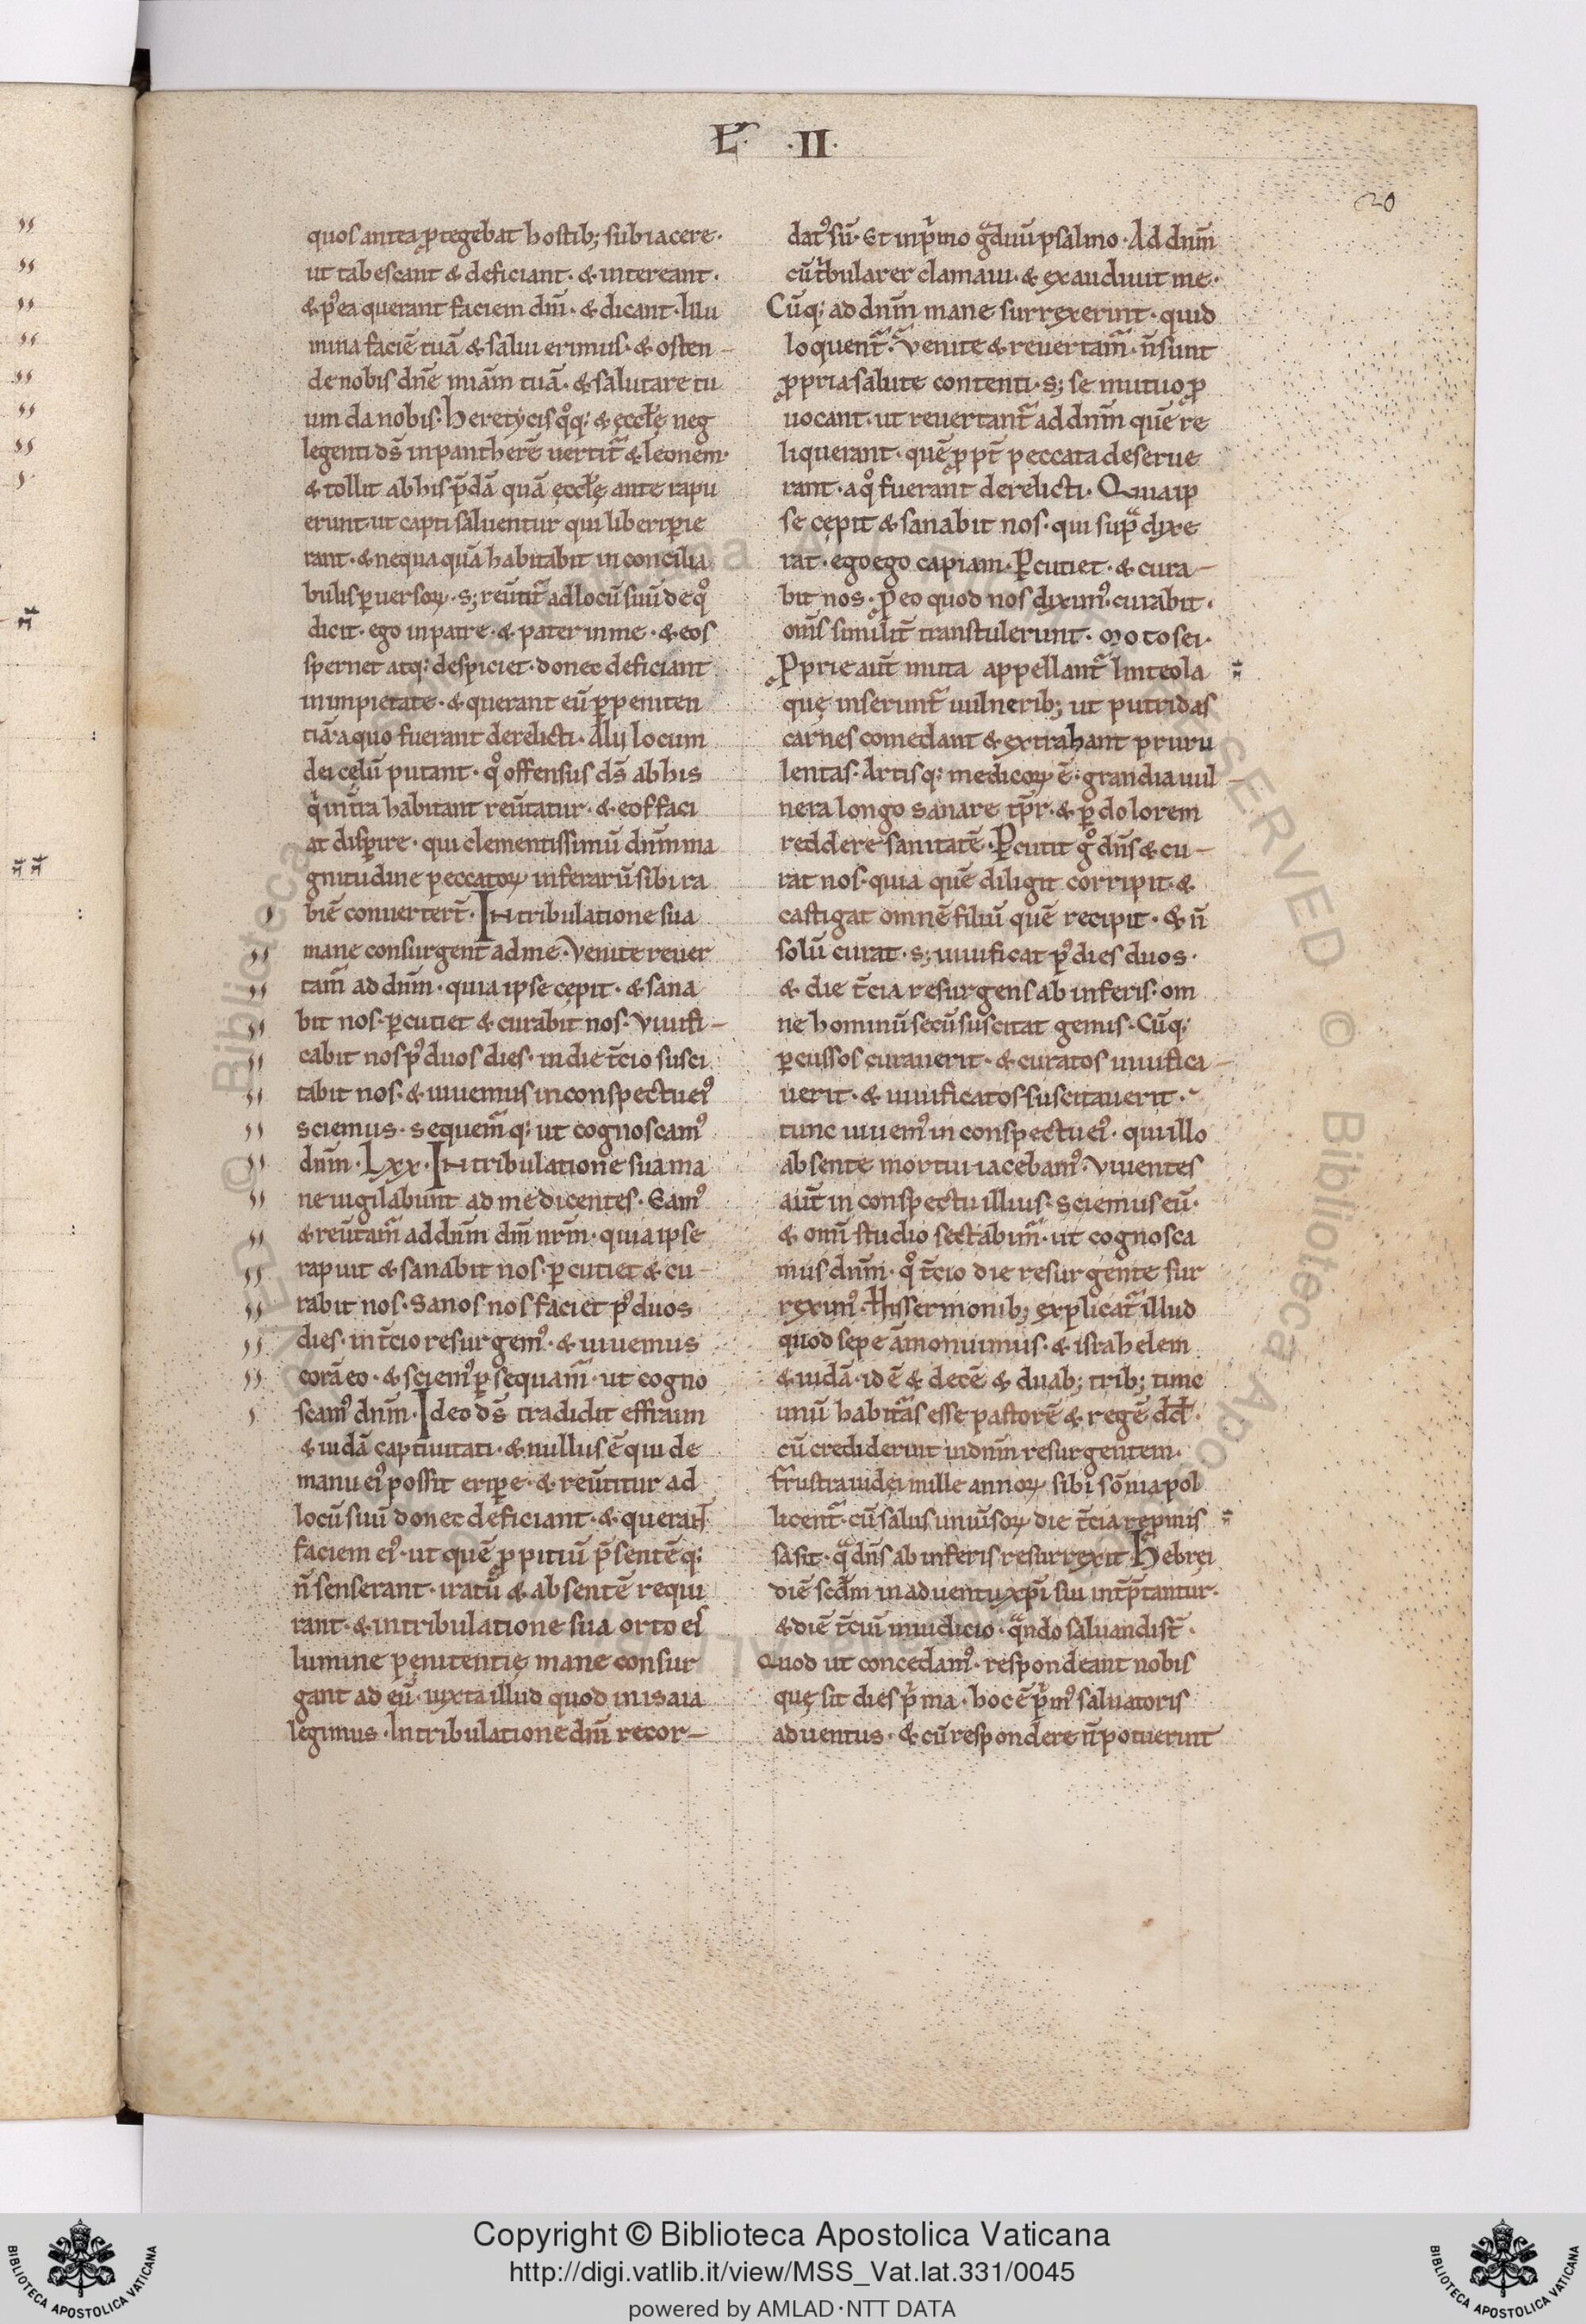 L᷒. ·II·
20
quos antea ꝓtegebat hostib; subiacere·
ut tabescant & deficiant· & intereant·
& p᷒ea querant faciem dn̄i· & dicant· Illu
mina faciē tuā & salui erimus· & osten-
de nobis dn̄e miām tuā· & salutare tu
um da nobis· heretycis qͦq; & ęccl̄ę neg
legenti ds̄ in pantherē uertit᷑ & leonem·
& tollit ab his p̄dā quā ęccl̄ę ante rapu
erunt· ut capti saluentur qui liberi ꝑie
rant· & nequaquā habitabit in concilia
bulis ꝑuersoꝝ· s; reūtit᷑ ad locū suū de qͦ
dicit· ego in patre· & pater in me· & eos
spernet atq; despiciet· donec deficiant
in impietate· & querant eū ꝑ peniten
tiā· a quo fuerant derelicti· Alii locum
dei cęlū putant· qͦ offensus ds̄ ab his
q̇ int̄ra habitant reūtatur· & eos faci
at disꝑire· qui clementissimū dnm̄ ma
gnitudine peccatoꝝ in ferarū sibi ra
biē conuerter̄t· In tribulatione sua
mane consurgent̄ ad me· Venite reuer
tam᷑ ad dnm̄· quia ipse cępit· & sana
bit nos· ꝑcutiet & curabit nos· Viuifi-
cabit nos p᷒ duos dies· in die t̄cio susci
tabit nos· & uiuemus in conspectu ei᷒
sciemus· sequem᷑q; ut cognoscam᷒
dnm̄· Lxx· In tribulatione sua ma
ne uigilabunt ad me dicentes· Eam᷒
& reūtam᷑ ad dnm̄ dm̄ nr̄m· quia ipse
rapuit & sanabit nos· ꝑcutiet & cu-
rabit nos· Sanos nos faciet p᷒ duos
dies· in t̄cio resurgem᷒· & uiuemus
corā eo· & sciem᷒ ꝑsequam᷑· ut cogno
scam᷒ dnm̄· Ideo ds̄ tradidit effraim
& iudā captiuitati· & nullus ē qui de
manu ei᷒ possit eriꝑe· & reūtitur ad
locū suū donec deficiant· & querant
faciem ei᷒· ut quē ꝓpitiū p̄sentē q;
n̄ senserant· iratū & absentē requi
rant· & in tribulatione sua orto eis
lumine pęnitentię mane consur
gant ad eū· iuxta illud quod in isaia
legimus· In tribulatione dn̄i recor-
dat᷒ sū· Et in pͥmo gͣduū psalmo· Ad dnm̄
cū tͥbularer clamaui· & exaudiuit me·
Cūq; ad dnm̄ mane surrexerint· quid
loquent᷑· Venite & reuertam᷑· n̄ sunt
ꝓpria salute contenti· s; se mutuo ꝓ
uocant· ut reuertant᷑ ad dnm̄ quē re
liquerant· quē ꝓpt̄ peccata deserue
rant· a qͦ fuerant derelicti· Quia ip
se cępit & sanabit nos· qui supͣ dixe
rat· ego ego capiam· Ꝑcutiet· & cura-
bit nos· ꝓ eo quod nos dixim᷒· curabit·
om̄s similit̄ transtulerunt· moto sei·
Ꝓprie aut̄ muta appellant᷑ linteola
quę inserunt᷑ uulnerib; ut putridas
carnes comedant & extrahant puru
lentas· Artisq; medicoꝝ ē· grandia uul-
nera longo sanare tp̄r· & ꝑ dolorem
reddere sanitatē· Ꝑcutit gͦ dn̄s & cu-
rat nos· quia quē diligit corripit· &
castigat omnē filiū quē recipit· & n̄
solū curat· s; uiuificat p᷒ dies duos·
& die t̄cia resurgens ab inferis· om
ne hominū secū suscitat genus· Cūq;
ꝑcussos curauerit· & curatos uiuifica-
uerit· & uiuificatos suscitauerit·
tunc uiuem᷒ in conspectu ei᷒· qui illo
absente mortui iacebam᷒· Viuentes
aut̄ in conspectu illius· sciemus eū·
& omī studio sectabim᷑· ut cognosca
mus dnm̄· qͦ t̄cio die resurgente sur
rexim᷒· His sermonib; explicat᷑ illud
quod sępe āmonuimus· & israhelem
& iudā· id ē & decē & duab; trib; tunc
unū habitͣos esse pastorē & regē dd̄·
cū crediderint in dnm̄ resurgentem·
Frustra iudęi mille annoꝝ sibi sōnia pol
licent᷑· cū salus uniūsoꝝ die t̄cia repͥmis
sa sit· qͣ dn̄s ab inferis resurrexit· Hebręi
diē scd̄m in aduentu xp̄i sui int̄p̄tantur·
& diē t̄ciū in iudicio· qͣndo saluandi st̄·
Quod ut concedam᷒· respondeant nobis
quę sit dies pͥma· hoc ē pͥm᷒ saluatoris
aduentus· & cū respondere n̄ potuerint
Copyright © Biblioteca Apostolica Vaticana
http://digi.vatlib.it/view/MSS_Vat.lat.331/0045
powered by AMLAD·NTT DATA
BIBLIOTECA APOSTOLICA VATICANA
BIBLIOTECA APOSTOLICA VATICANA